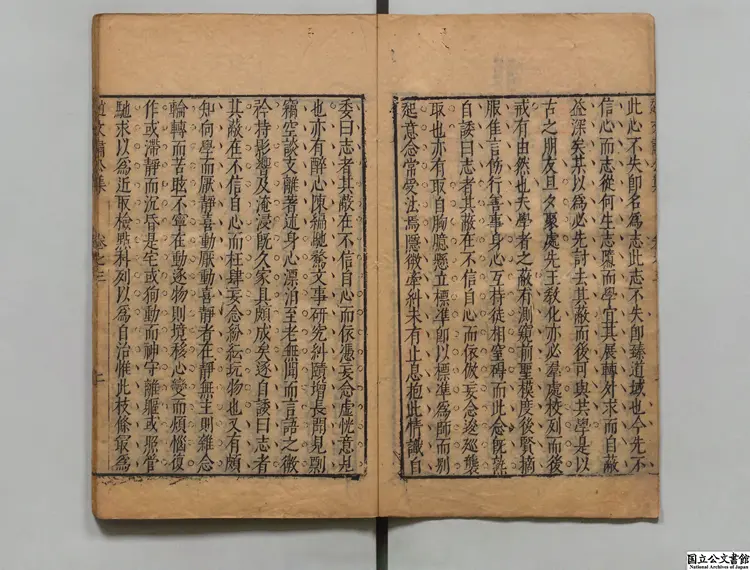 此心不失即名為志此志不失即臻道域也今先不
信心而志從何生志隳而學宜其展轉外求而自蔽
益深矣某以為必先討去其蔽而後可與共學是以
古之朋友旦夕聚處先王教化亦必羣處校列而後
戒有由然也夫學者之蔽有測窺前聖模度後賢摘
服隹言飭行害事身心互持徒相望稱而此念旣熟
自諉曰志者其蔽在不信自心而依倣妄念逡廵襲
取也亦有取自胸臆懸立標準即以標準為師而別
起意念常受法焉隱微牽糾未有止息抱此情識自
委曰志者其蔽在不信自心而依憑妄念虛恍意見
也亦有醉心陳編馳騖文事研究糾賾增長問見剽
竊空談支離著述身心漂泊至老無聞而言語之微
矜持影響及淹浸旣久家具頗成矣遂自諉曰志者
其蔽在不信自心而枉肆妄念紛紜玩物也又有頗
知向學而厭靜喜動厭動喜靜者在靜無主則雜念
輪轉而苦眩不寧在動逐物則境移心變而煩惱復
作或滯靜而沉昏是宅或狥動而神守離軀或照管
馳求以為近取檢㸃科列以為自治惟此枝條最為
卷之三
国立公文書館
National Archives of Japan